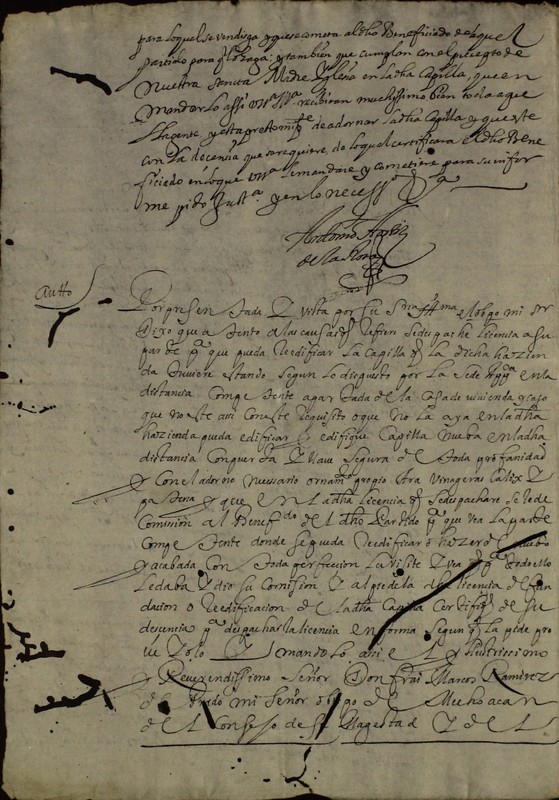 para lo qual se vendiga y que se cometa al dho Beneficiado de aquel
partido para q lo haga; y tambien que cumplan con el precepto de
Nuestra Santa Madre Iglesia en la dha Capilla, que en
mandarlo assi VSª Illª recibiran muchissimo bien toda aque
lla gente y esta presto mi pte de adornar la dha Capilla y que este
con la decencia que se requiere, de lo qual certificara el dho Bene
ficiado en lo que VSª le mandare y cometiere para su infor
me pido Justª y en lo necessº
Antonio
de la Rosa
Autto
Por presentada Y vista por su Sria Illma el obpo mi sr
Dixo que atento a las causas q refiere se despache licencia a su
parte pª que pueda Reedificar la capilla q la dicha hazien
da tuviere estando segun lo dispuesto por la Sede Appca en la
distancia competente apartada de la Casa de vivienda y caso
que no este con este requisito o que no la aya en la dha
hazienda pueda edificar y edifique Capilla nueba en la dha
distancia con puerta Y llave segura de toda profanidad
Y con el adorno nessario ornamto propio Ara vinageras Caliz Y
patena y que en la dha licencia q se despachare se le de
Comision al Benefdo del dho Partido pª que vea la parte
competente donde se pueda Reedificar o hazer de
y acabada con toda perfeccion la visite Y vea q pª todo ello
le daba Y dio su Comision Y al pie de la dha licencia de fun
dacion o Reedificacion de la dha Capilla Certifiqe de su
descencia pª despachar la licencia en forma segun q la pide pro
veyolo Y mandolo assi el Illustrissimo
Y Reverendissimo Señor Don frai Marcos Ramirez
de Prado mi Señor obispo de Mechoacan
del Consejo de su Magestad Y del